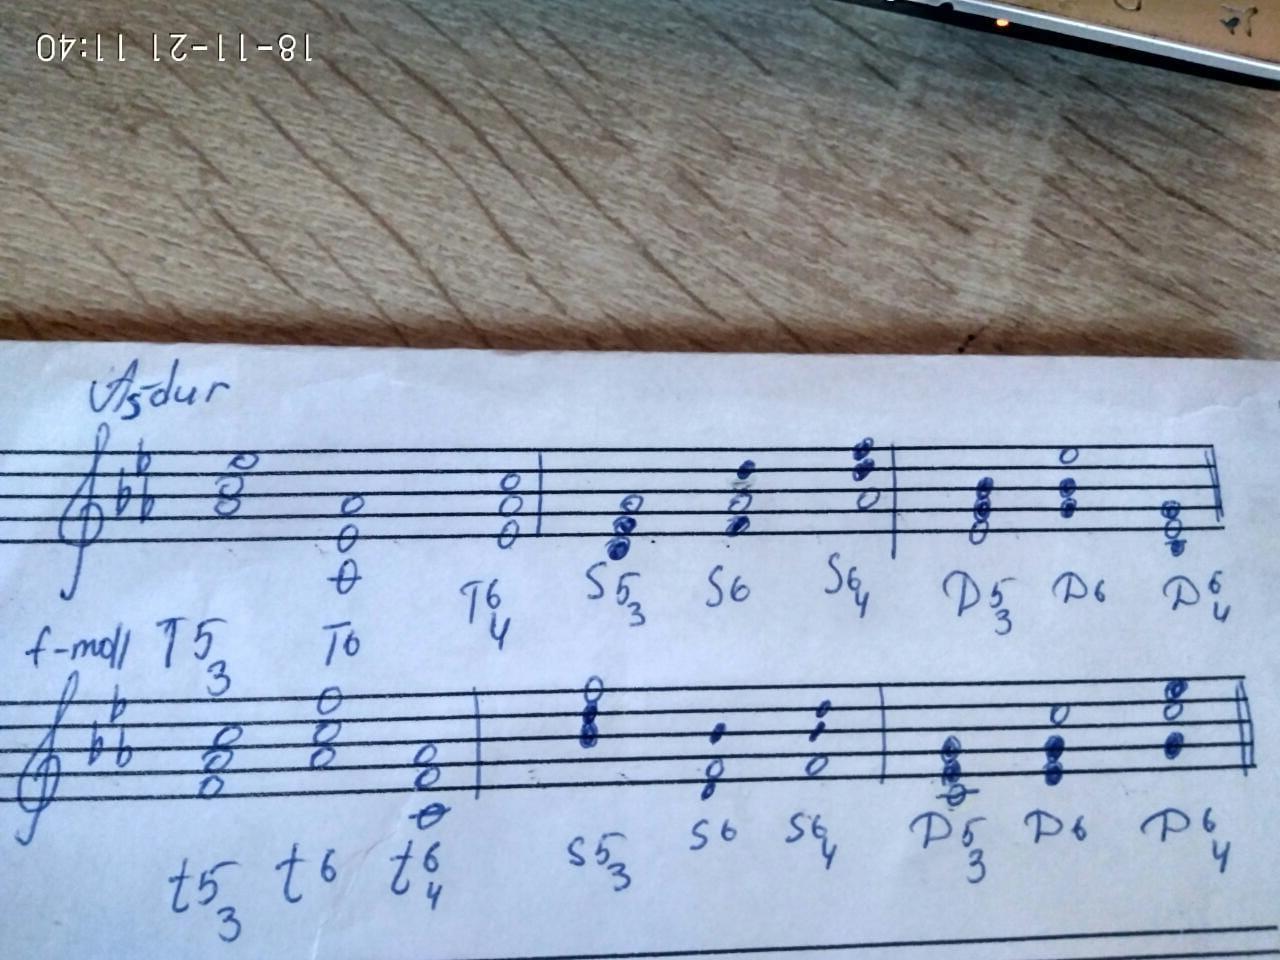 18-11-21 11:40
As-dur
T6 4 S5 3 S6 S6 4 D5 3 D6 D6 4
f-moll T5 3 T6
t5 3 t6 t6 4 S5 3 S6 S6 4 D5 3 D6 D6 4